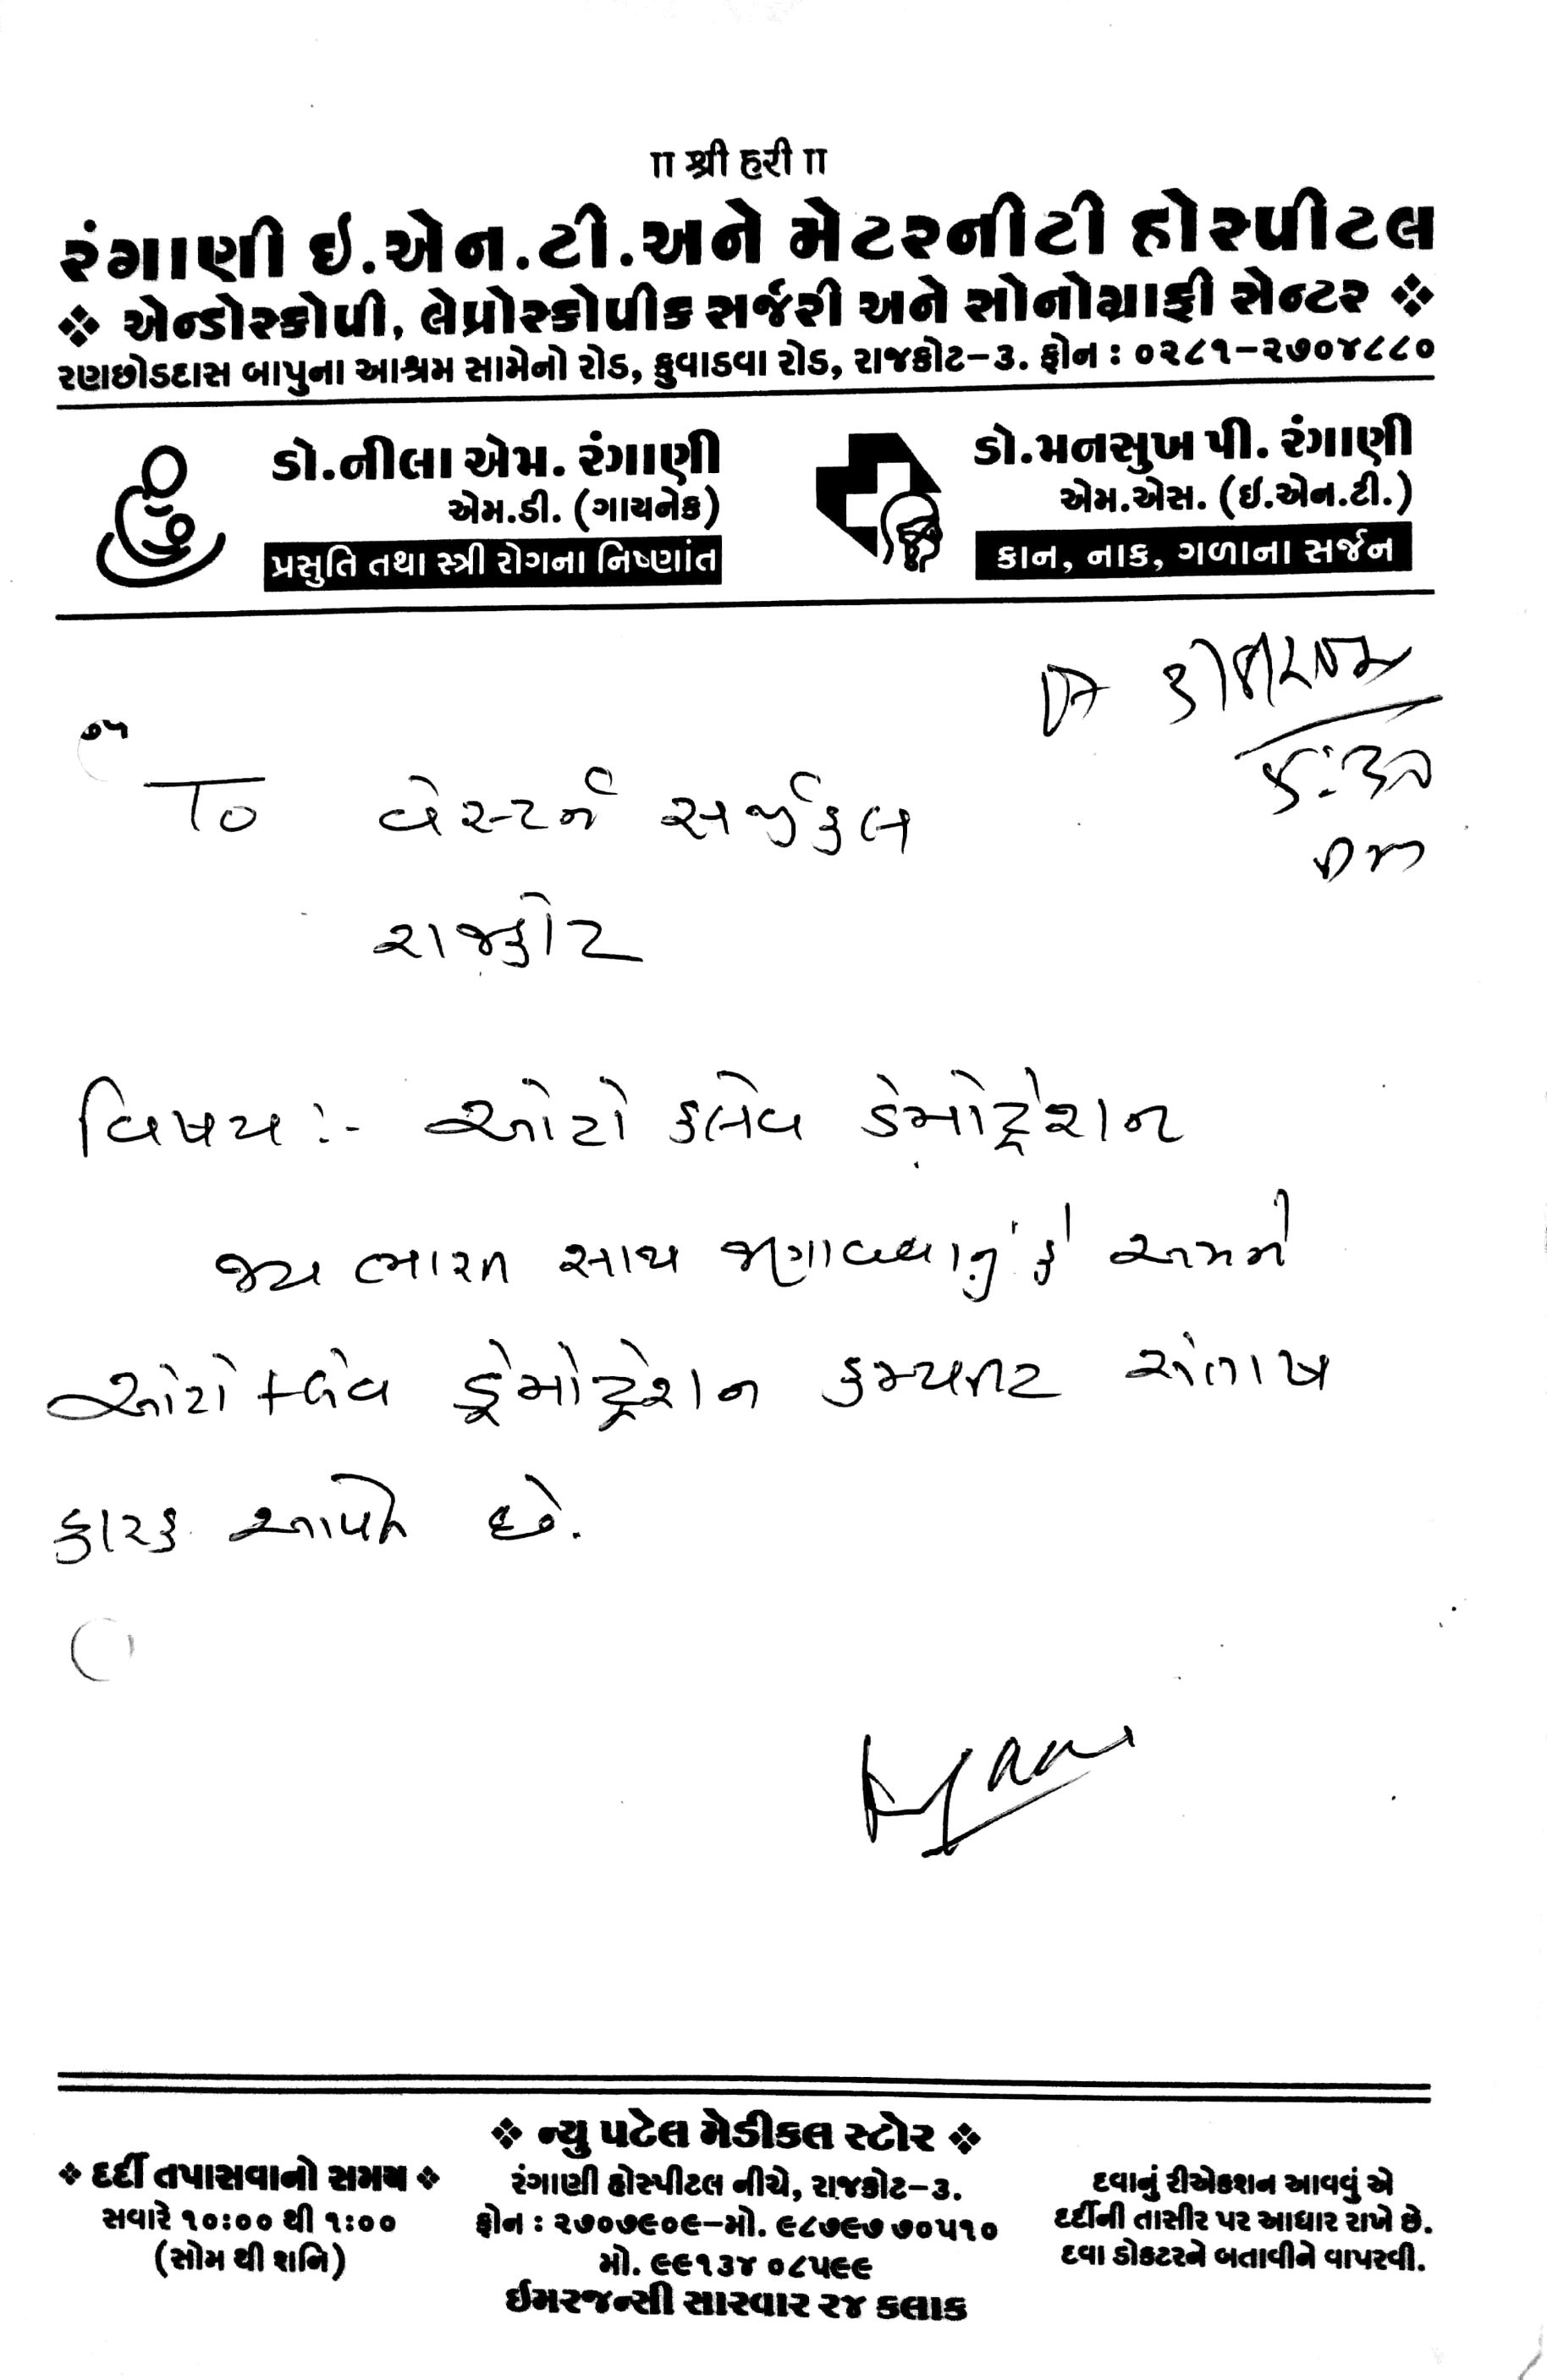 ॥ શ્રી હરી ॥
રંગાણી ઇ.એન.ટી.અને મેટરનીટી હોસ્પીટલ
❖ એન્ડોસ્કોપી, લેપ્રોસ્કોપીક સર્જરી અને સોનોગ્રાફી સેન્ટર ❖
રણછોડદાસ બાપુના આશ્રમ સામેનો રોડ, કુવાડવા રોડ, રાજકોટ-૩. ફોન : ૦૨૮૧-૨૭૦૪૮૮૦
ડો.નીલા એમ. રંગાણી
એમ.ડી. (ગાયનેક)
પ્રસુતિ તથા સ્ત્રી રોગના નિષ્ણાંત
ડો.મનસુખ પી. રંગાણી
એમ.એસ. (ઇ.એન.ટી.)
કાન, નાક, ગળાના સર્જન
To વેસ્ટર્ન સર્જીકલ
રાજકોટ
વિષય :- ઓટો કલેવ ડેમોટ્રેશન
જય ભારત સાથ જણાવવાનું કે અમને
ઓટો કલેવ ડેમોટ્રેશન કમ્પલીટ સંતોષ
કારક આપેલ છે.
❖ દર્દી તપાસવાનો સમય ❖
સવારે ૧૦:૦૦ થી ૧:૦૦
(સોમ થી શનિ)
❖ ન્યુ પટેલ મેડીકલ સ્ટોર ❖
રંગાણી હોસ્પીટલ નીચે, રાજકોટ-૩.
ફોન : ૨૭૦૭૯૦૯-મો. ૯૮૭૯૭ ૭૦૫૧૦
મો. ૯૯૧૩૪ ૦૮૫૯૯
ઈમરજન્સી સારવાર ૨૪ કલાક
દવાનું રીએકશન આવવું એ
દર્દીની તાસીર પર આધાર રાખે છે.
દવા ડોકટરને બતાવીને વાપરવી.